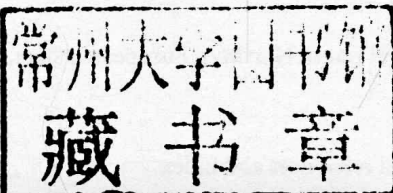 常州大学山书馆
藏书章